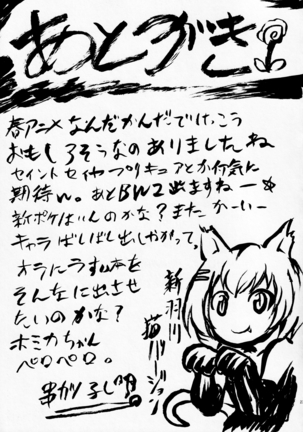 あとがき
春アニメなんだかんだでけっこう
おもしろそうなのありましたね
セイントセイヤ プリキュアとか行気に
期待w。あとBW2出ますねー
新ポケはいんのかな?またかーいー
キャラばしばし出しやがって。
オラにうす い本を
そんなに出させ
たいのかな?
ホミカちゃん
ペロペロ。
新羽川
猫バージョン
串がり子し明